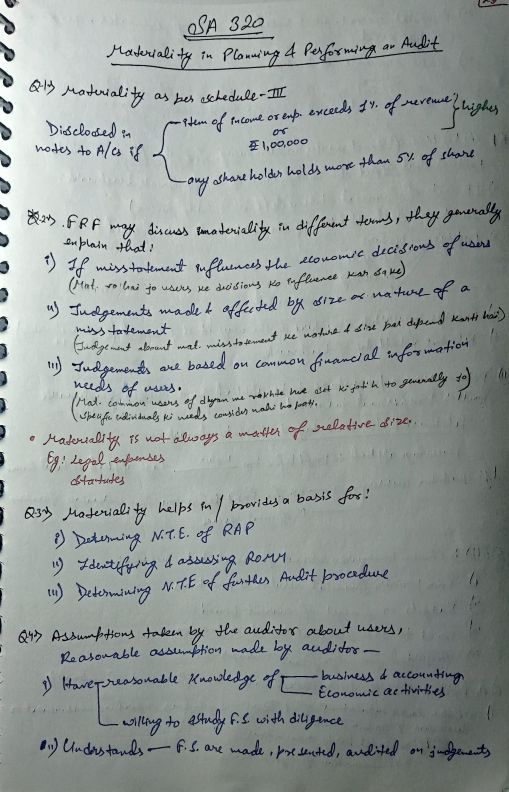 SA 320
Materiality in Planning & Performing an Audit
Q-1) Materiality as per schedule-III
Disclosed in notes to A/Cs if
item of income or exp. exceeds 1% of revenue
or
₹ 1,00,000
} higher
any shareholder holds more than 5% of share
Q-2) FRF may discuss materiality in different terms, they generally
explain that:
i) If misstatement influences the economic decisions of users
(Mat. vo hai jo users ke decisions ko influence kar sake)
ii) Judgements made & affected by size or nature of a
misstatement
(Judgement about mat. misstatement ke nature & size par depend karti hai)
iii) Judgements are based on common financial information
needs of users.
(Mat. common users ko dhyan me rakhte hue set ki jati h to generally
specific individuals ki needs consider nahi ho pati.
• Materiality is not always a matter of relative size.
Eg: Legal expenses
Statutes
Q-3) Materiality helps in / provides a basis for:
i) Determing N.T.E. of RAP
ii) Identifying & assessing ROMM
iii) Determining N.T.E of further Audit procedure
Q-4) Assumptions taken by the auditor about users,
Reasonable assumption made by auditor —
i) Have reasonable knowledge of business & accounting
Economic activities
willing to study F.S. with diligence
ii) Understands — F.S. are made, presented, audited on judgements